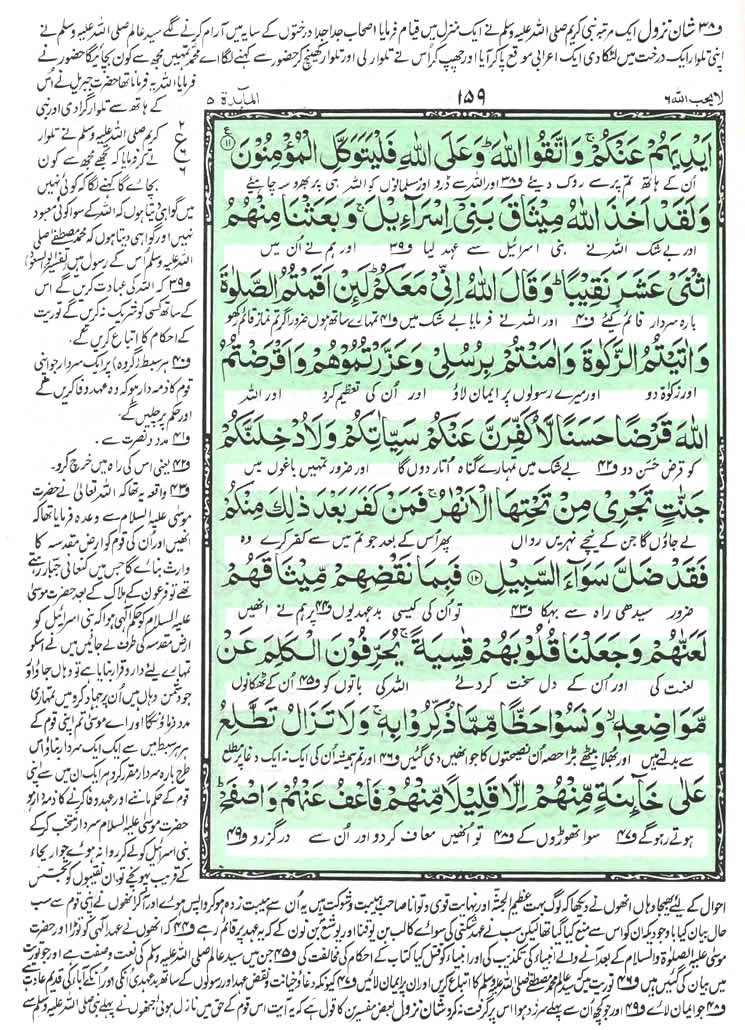 و۳۸ شان نزول ایک مرتبہ نبی کریم صلی اللہ علیہ وسلم نے ایک منزل میں قیام فرمایا اصحاب جدا جدا درختوں کے سایہ میں آرام کرنے لگے سید عالم صلی اللہ علیہ وسلم نے
اپنی تلوار ایک درخت میں لٹکا دی ایک اعرابی موقع پا کر آیا اور چھپ کر اس نے تلوار لی اور تلوار کھینچ کر حضور سے کہنے لگا اے محمد تمہیں مجھ سے کون بچائیگا حضور نے
لا یحب اللہ ۶
۱۵۹
المآئدۃ ۵
اَيْدِيَهُمْ عَنْكُمْ ۚ وَاتَّقُوا اللّٰهَ ؕ وَعَلَى اللّٰهِ فَلْيَتَوَكَّلِ الْمُؤْمِنُوْنَ ﴿۱۱﴾
اُن کے ہاتھ تم پر سے روک دیئے و۳۸ اور اللہ سے ڈرو اور مسلمانوں کو اللہ ہی پر بھروسہ چاہیئے
وَلَقَدْ اَخَذَ اللّٰهُ مِيْثَاقَ بَنِيْۤ اِسْرَآءِيْلَ ۚ وَبَعَثْنَا مِنْهُمُ
اور بے شک اللہ نے بنی اسرائیل سے عہد لیا و۳۹ اور ہم نے اُن میں
اثْنَيْ عَشَرَ نَقِيْبًا ؕ وَقَالَ اللّٰهُ اِنِّيْ مَعَكُمْ ؕ لَئِنْ اَقَمْتُمُ الصَّلٰوةَ
بارہ سردار قائم کیئے و۴۰ اور اللہ نے فرمایا بے شک میں و۴۱ تمہارے ساتھ ہوں ضرور اگر تم نماز قائم رکھو
وَاٰتَيْتُمُ الزَّكٰوةَ وَاٰمَنْتُمْ بِرُسُلِيْ وَعَزَّرْتُمُوْهُمْ وَاَقْرَضْتُمُ
اور زکوٰۃ دو اور میرے رسولوں پر ایمان لاؤ اور اُن کی تعظیم کرو اور اللہ
اللّٰهَ قَرْضًا حَسَنًا لَّاُكَفِّرَنَّ عَنْكُمْ سَيِّاٰتِكُمْ وَلَاُدْخِلَنَّكُمْ
کو قرض حسن دو و۴۲ بے شک میں تمہارے گناہ اُتار دوں گا اور ضرور تمہیں باغوں میں
جَنّٰتٍ تَجْرِيْ مِنْ تَحْتِهَا الْاَنْهٰرُ ۚ فَمَنْ كَفَرَ بَعْدَ ذٰلِكَ مِنْكُمْ
لے جاؤں گا جن کے نیچے نہریں رواں پھر اُس کے بعد جو تم میں سے کفر کرے وہ
فَقَدْ ضَلَّ سَوَآءَ السَّبِيْلِ ﴿۱۲﴾ فَبِمَا نَقْضِهِمْ مِّيْثَاقَهُمْ
ضرور سیدھی راہ سے بہکا و۴۳ تو اُن کی کیسی بدعہدیوں و۴۴ پر ہم نے انھیں
لَعَنّٰهُمْ وَجَعَلْنَا قُلُوْبَهُمْ قٰسِيَةً ۚ يُحَرِّفُوْنَ الْكَلِمَ عَنْ
لعنت کی اور اُن کے دل سخت کر دئے اللہ کی باتوں کو و۴۵ اُن کے ٹھکانوں
مَّوَاضِعِهٖ ۙ وَنَسُوْا حَظًّا مِّمَّا ذُكِّرُوْا بِهٖ ۚ وَلَا تَزَالُ تَطَّلِعُ
سے بدلتے ہیں اور بُھلا بیٹھے بڑا حصہ اُن نصیحتوں کا جو انھیں دی گئیں و۴۶ اور تم ہمیشہ اُن کی ایک نہ ایک دغا پر مطلع
عَلٰى خَآئِنَةٍ مِّنْهُمْ اِلَّا قَلِيْلًا مِّنْهُمْ فَاعْفُ عَنْهُمْ وَاصْفَحْ ؕ
ہوتے رہو گے و۴۷ سوا تھوڑوں کے و۴۸ تو انھیں معاف کر دو اور اُن سے درگزرو و۴۹
فرمایا اللہ یہ فرمانا تھا حضرت جبریل نے اُس
کے ہاتھ سے تلوار گرا دی اور نبی
کریم صلی اللہ علیہ وسلم نے تلوار
لے کر فرمایا کہ تجھے مجھ سے کون
بچائے گا کہنے لگا کہ کوئی نہیں
میں گواہی دیتا ہوں کہ اللہ کے سوا کوئی معبود
نہیں اور گواہی دیتا ہوں کہ محمد مصطفٰے صلی
اللہ علیہ وسلم اُس کے رسول ہیں (تفسیر ابو السعود)
و۳۹ کہ اللہ کی عبادت کریں گے اُس
کے ساتھ کسی کو شریک نہ کریں گے توریت
کے احکام کا اتباع کریں گے۔
و۴۰ ہر سبط (گروہ) پر ایک سردار جو اپنی
قوم کا ذمہ دار ہو کہ وہ عہد وفا کریں گے
اور حکم پر چلیں گے۔
و۴۱ مدد و نصرت سے۔
و۴۲ یعنی اس کی راہ میں خرچ کرو۔
و۴۳ واقعہ یہ تھا کہ اللہ تعالیٰ نے حضرت
موسیٰ علیہ السلام سے وعدہ فرمایا تھا کہ
انھیں اور اُن کی قوم کو ارض مقدسہ کا
وارث بنائے گا جس میں کنعانی جبار رہتے
تھے تو فرعون کے ہلاک کے بعد حضرت موسیٰ
علیہ السلام کو حکم الٰہی ہوا کہ بنی اسرائیل کو
ارض مقدسہ کی طرف لے جائیں میں نے اسکو
تمہارے لئے دار و قرار بنایا ہے تو وہاں جاؤ اور
جو دشمن وہاں ہیں اُن پر جہاد کرو میں تمہاری
مدد فرماؤنگا اور اے موسیٰ تم اپنی قوم کے
ہر ہر سبط میں سے ایک ایک سردار بناؤ اس
طرح بارہ سردار مقرر کرو ہر ایک ان میں سے اپنی
قوم کے حکم ماننے اور عہد وفا کرنے کا ذمہ دار ہو
حضرت موسیٰ علیہ السلام سردار منتخب کر کے
بنی اسرائیل کو لے کر روانہ ہوئے جب اریحاء
کے قریب پہونچے تو ان نقیبوں کو تجسس
احوال کے لئے بھیجا وہاں انھوں نے دیکھا کہ لوگ بہت عظیم الجثہ اور نہایت قوی و توانا صاحب ہیبت و شوکت ہیں یہ اُن سے ہیبت زدہ ہو کر واپس ہوئے اور آ کر انھوں نے اپنی قوم سے سب
حال بیان کیا باوجودیکہ ان کو اس سے منع کیا گیا تھا لیکن سب نے عہد شکنی کی سوائے کالب بن یوقنا اور یوشع بن نون کے کہ یہ عہد پر قائم رہے و۴۴ کہ انھوں نے عہد الٰہی کو توڑا اور حضرت
موسیٰ علیہ الصلوٰۃ والسلام کے بعد آنے والے انبیاء کی تکذیب کی اور انبیاء کو قتل کیا کتاب کے احکام کی مخالفت کی و۴۵ جن میں سید عالم صلی اللہ علیہ وسلم کی نعت و صفت ہے اور جو توریت
میں بیان کی گئیں ہیں و۴۶ توریت میں کہ سید عالم محمد مصطفٰے صلی اللہ علیہ وسلم کا اتباع کریں اور ان پر ایمان لائیں و۴۷ کیونکہ دغا و خیانت و نقض عہد اور رسولوں کے ساتھ بدعہدی اُنکی اور اُنکے آباء کی قدیم عادت ہے
و۴۸ جو ایمان لائے و۴۹ اور جو کچھ اُن سے پہلے سرزد ہوا اس پر گرفت نہ کرو شان نزول بعض مفسرین کا قول ہے کہ یہ آیت اس قوم کے حق میں نازل ہوئی جنھوں نے پہلے نبی صلی اللہ علیہ وسلم سے